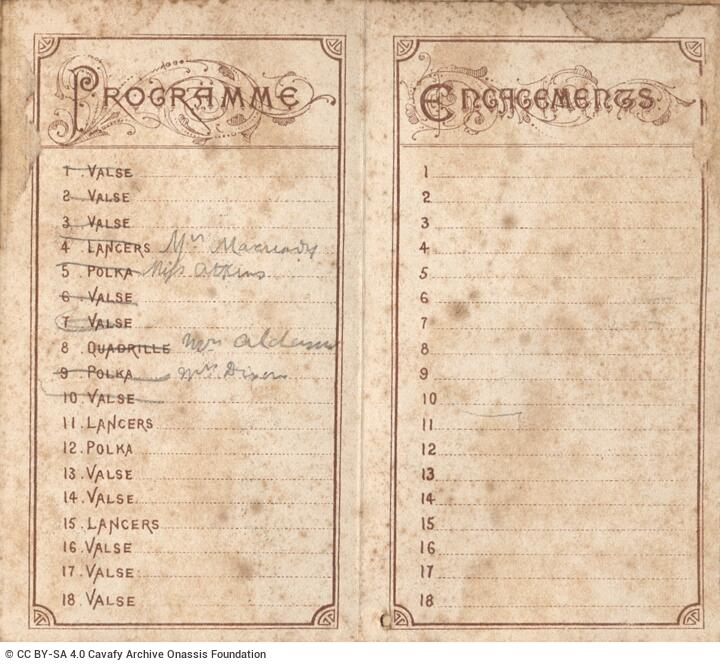 PROGRAMME
1. VALSE
2. VALSE
3. VALSE
4. LANCERS Mrs Macready
5. POLKA Miss Atkins
6. VALSE
7. VALSE
8. QUADRILLE Mrs
9. POLKA Mrs Dixon
10. VALSE
11. LANCERS
12. POLKA
13. VALSE
14. VALSE
15. LANCERS
16. VALSE
17. VALSE
18. VALSE
ENGAGEMENTS
1
2
3
4
5
6
7
8
9
10
11
12
13
14
15
16
17
18
© CC BY-SA 4.0 Cavafy Archive Onassis Foundation